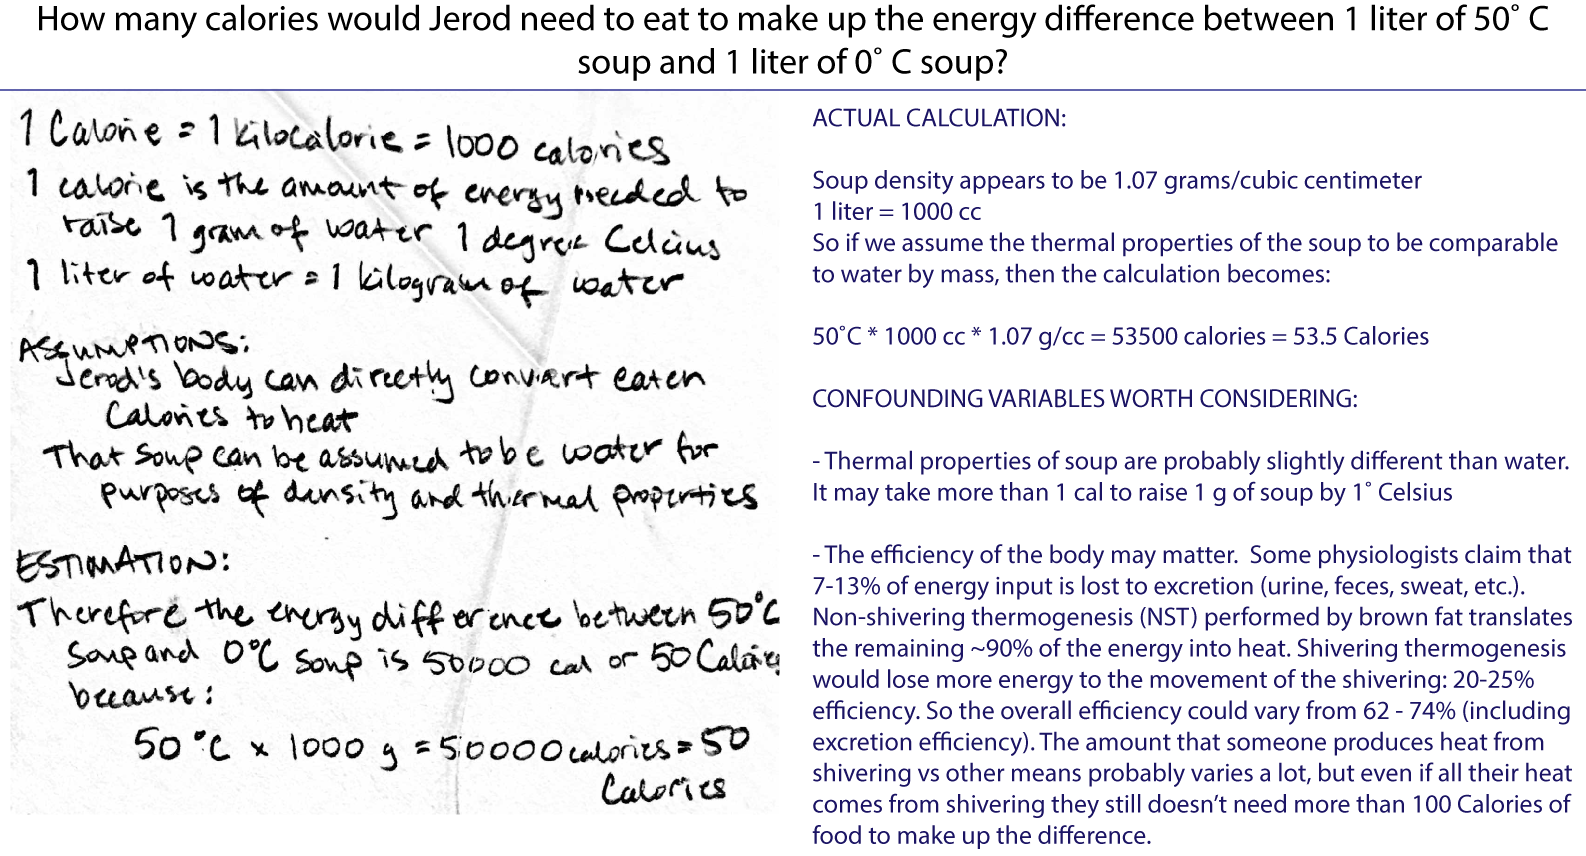 How many calories would Jerod need to eat to make up the energy difference between 1 liter of 50˚ C
soup and 1 liter of 0˚ C soup?
1 Calorie = 1 kilocalorie = 1000 calories
1 calorie is the amount of energy needed to
raise 1 gram of water 1 degree Celcius
1 liter of water = 1 kilogram of water
ASSUMPTIONS:
Jerod's body can directly convert eaten
Calories to heat
That soup can be assumed to be water for
purposes of density and thermal properties
ESTIMATION:
Therefore the energy difference between 50°C
soup and 0°C soup is 50000 cal or 50 Calories
because:
50 °C x 1000 g = 50000 calories = 50
Calories
ACTUAL CALCULATION:
Soup density appears to be 1.07 grams/cubic centimeter
1 liter = 1000 cc
So if we assume the thermal properties of the soup to be comparable
to water by mass, then the calculation becomes:
50˚C * 1000 cc * 1.07 g/cc = 53500 calories = 53.5 Calories
CONFOUNDING VARIABLES WORTH CONSIDERING:
- Thermal properties of soup are probably slightly different than water.
It may take more than 1 cal to raise 1 g of soup by 1˚ Celsius
- The efficiency of the body may matter.  Some physiologists claim that
7-13% of energy input is lost to excretion (urine, feces, sweat, etc.).
Non-shivering thermogenesis (NST) performed by brown fat translates
the remaining ~90% of the energy into heat. Shivering thermogenesis
would lose more energy to the movement of the shivering: 20-25%
efficiency. So the overall efficiency could vary from 62 - 74% (including
excretion efficiency). The amount that someone produces heat from
shivering vs other means probably varies a lot, but even if all their heat
comes from shivering they still doesn't need more than 100 Calories of
food to make up the difference.